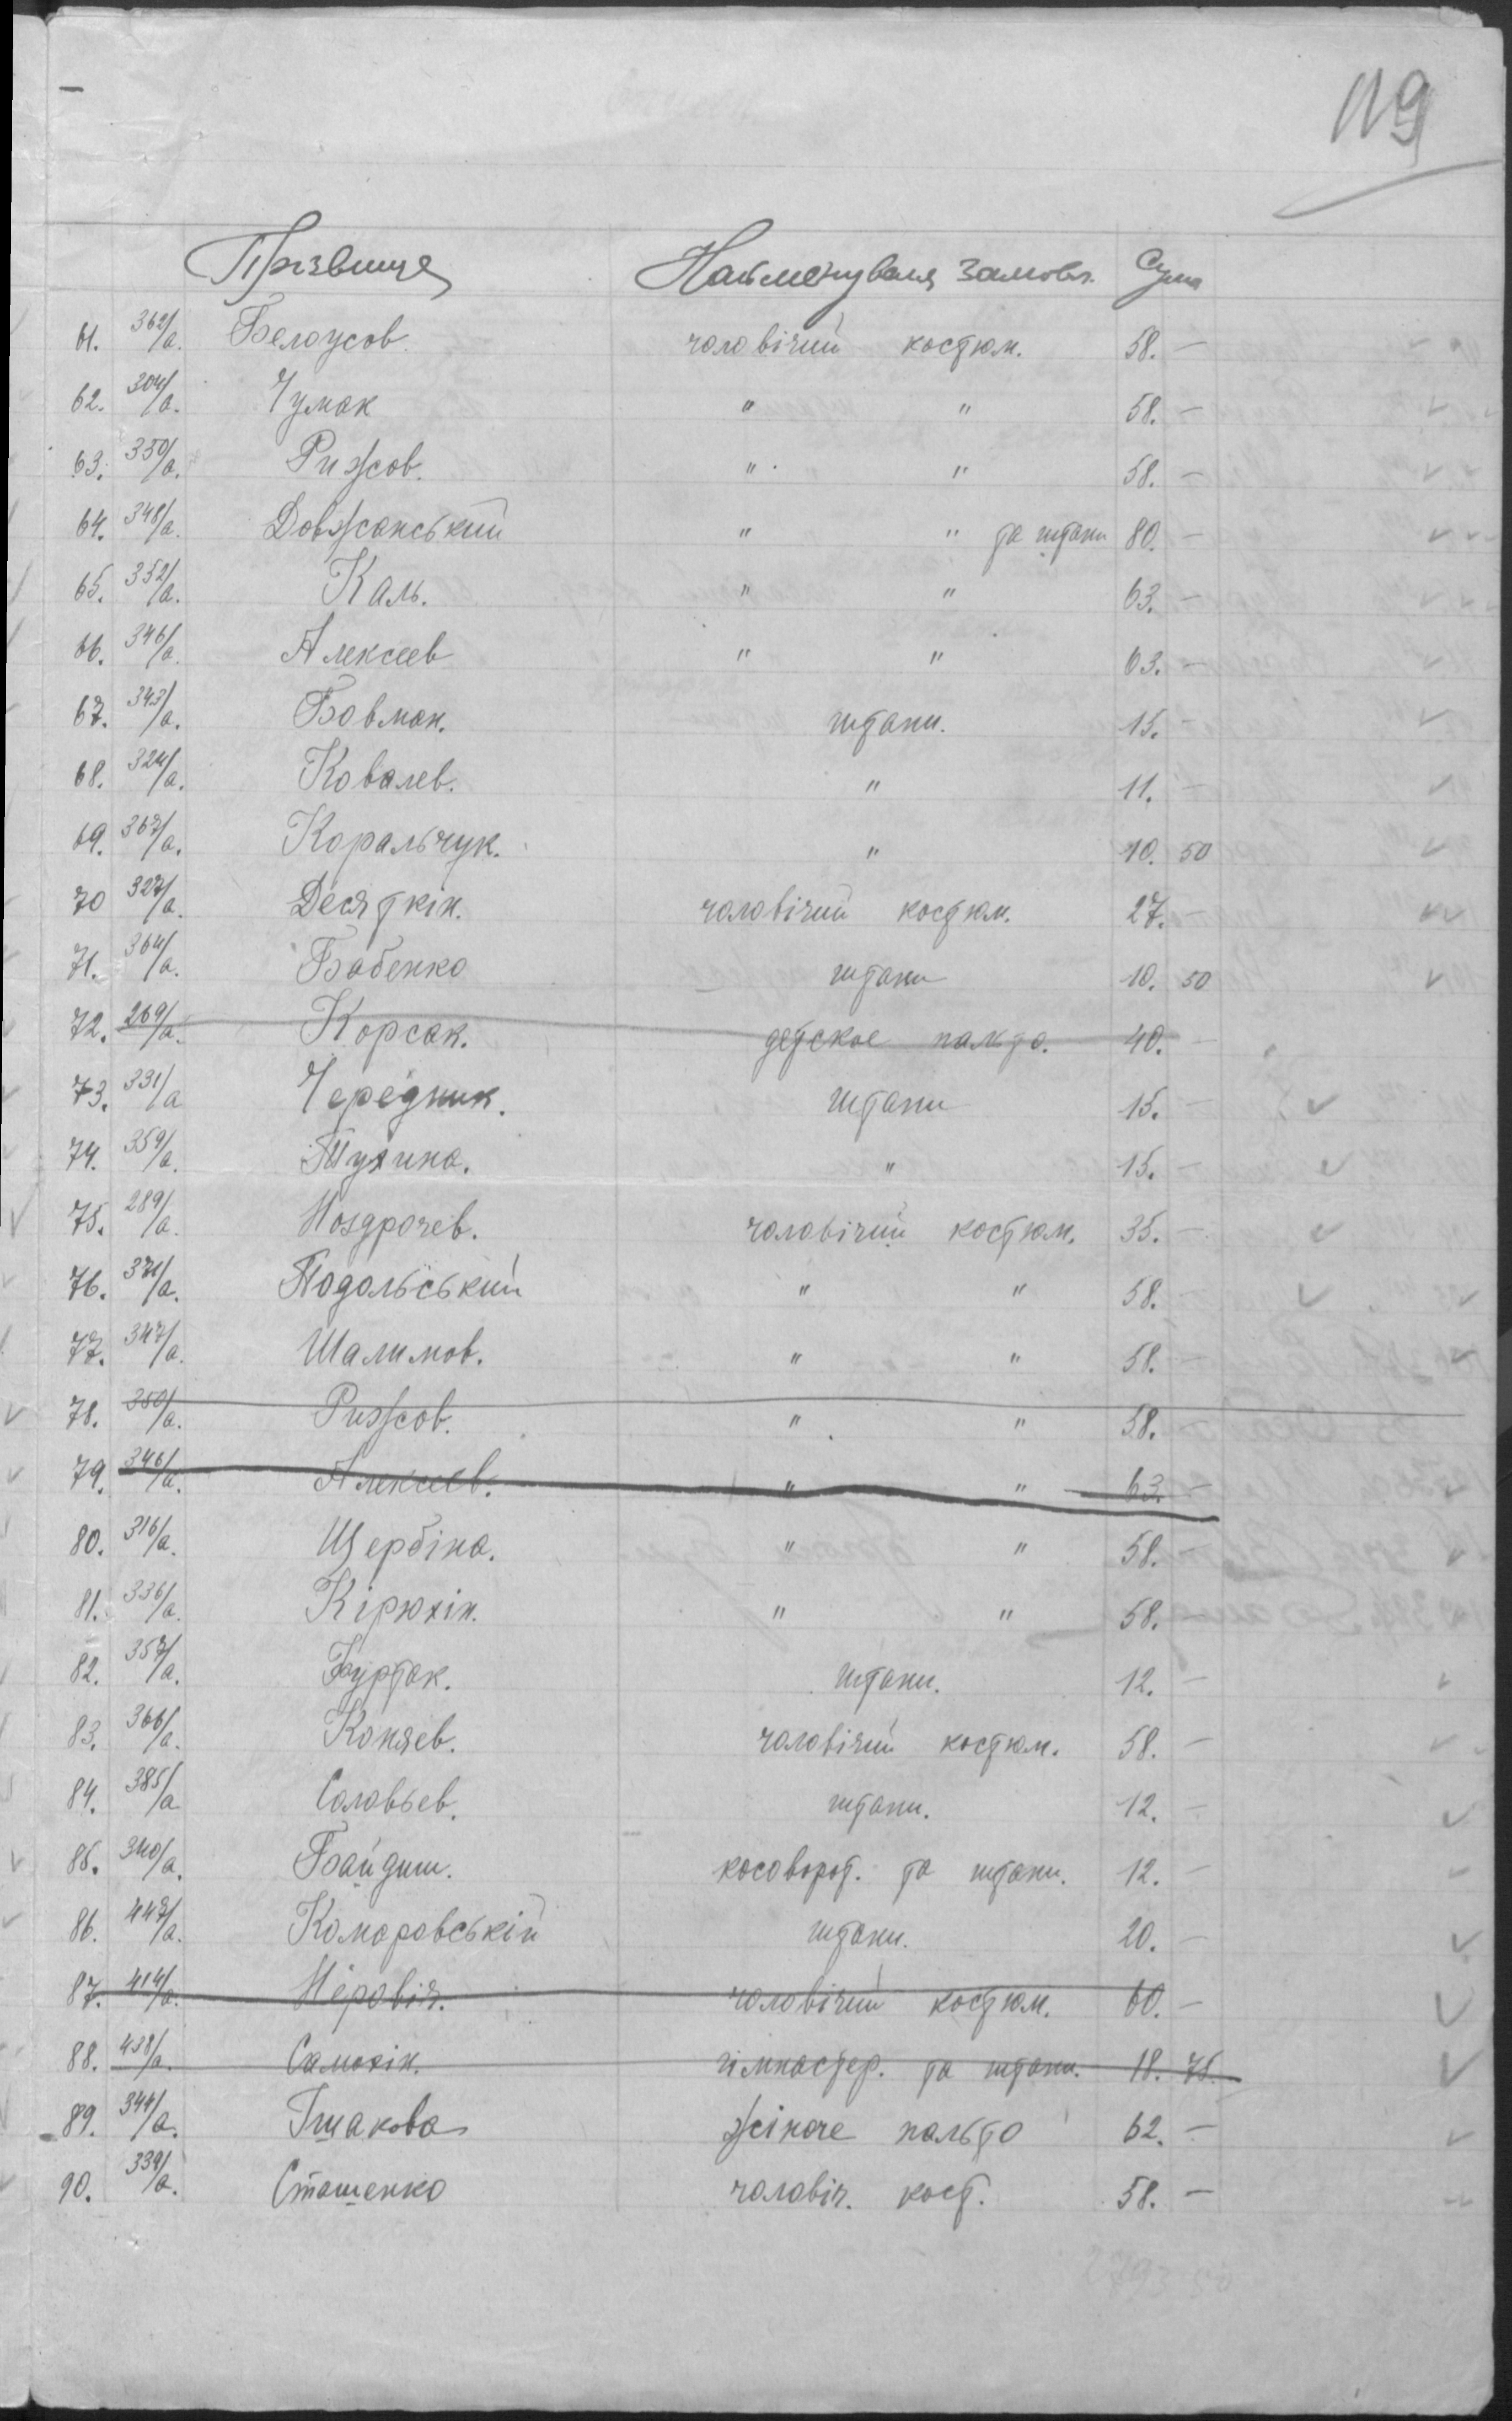 119
Прізвище Найменуваня замовл. Сума
61. 362/а. Белоусов. чоловічий костюм. 58. —
62. 304/а. Чумак " " 58. —
63. 350/а. Рижков. " " 58. —
64. 348/а. Довжанський " " та штани 80. —
65. 352/а. Каль. " " 63. —
66. 346/а. Алексеев " " 63. —
67. 343/а. Бовман. штани. 15. —
68. 324/а. Ковалев. " 11. —
69. 367/а. Коральчук. " 10. 50
70 327/а. Десяткін. чоловічий костюм. 27. —
71. 364/а. Бабенко штани 10. 50
72. 269/а. Корсак. детское пальто. 40. —
73. 331/а Чередник. штани 15. —
74. 359/а. Тухина. " 15. —
75. 289/а. Ноздрочев. чоловічий костюм. 35. —
76. 371/а. Подольський " " 58. —
77. 347/а. Шалимов. " " 58. —
78. 350/а. Рижков. " " 58. —
79. 346/а. Алексеев. " " 63. —
80. 316/а. Щербіна. " " 58. —
81. 336/а. Кірюхін. " " 58. —
82. 357/а. Буртак. штани. 12. —
83. 366/а. Коняев. чоловічий костюм. 58. —
84. 385/а Соловьев. штани. 12. —
85. 340/а. Байдиш. косоворот. та штани. 12. —
86. 447/а. Комаровській штани. 20. —
87. 414/а. Неровіч. чоловічий костюм. 60. —
88. 438/а. Самохін. гімнастер. та штани. 18. 75.
89. 344/а. Гшакова жіноче пальто 62. —
90. 339/а. Сташенко чоловіч. кост. 58. —